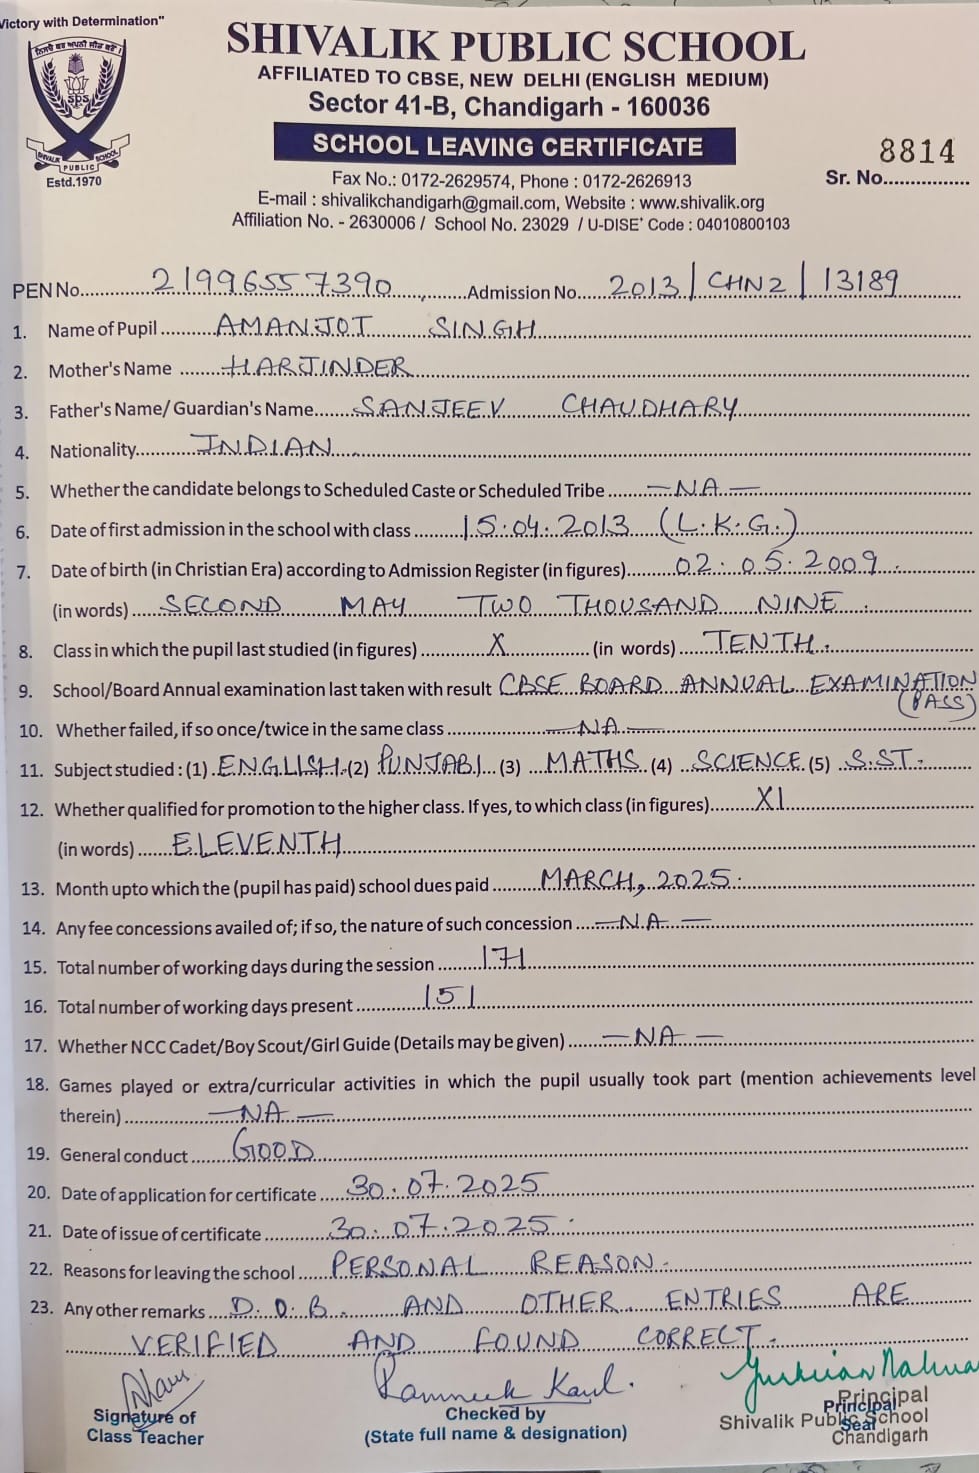 Victory with Determination"
SHIVALIK PUBLIC SCHOOL
AFFILIATED TO CBSE, NEW DELHI (ENGLISH MEDIUM)
Sector 41-B, Chandigarh - 160036
SCHOOL LEAVING CERTIFICATE
SPS
SHIVALIK PUBLIC SCHOOL
Estd.1970
8814
Sr. No................
Fax No.: 0172-2629574, Phone : 0172-2626913
E-mail : shivalikchandigarh@gmail.com, Website : www.shivalik.org
Affiliation No. - 2630006 / School No. 23029 / U-DISE' Code : 04010800103
PEN No. 21996557390 Admission No. 2013/CHN2/13189
1. Name of Pupil AMANJOT SINGH
2. Mother's Name HARJINDER
3. Father's Name/ Guardian's Name SANJEEV CHAUDHARY
4. Nationality INDIAN
5. Whether the candidate belongs to Scheduled Caste or Scheduled Tribe —NA—
6. Date of first admission in the school with class 15.04.2013 (L.K.G.)
7. Date of birth (in Christian Era) according to Admission Register (in figures) 02.05.2009.
(in words) SECOND MAY TWO THOUSAND NINE.
8. Class in which the pupil last studied (in figures) X (in words) TENTH.
9. School/Board Annual examination last taken with result CBSE BOARD ANNUAL EXAMINATION
(PASS)
10. Whether failed, if so once/twice in the same class —NA—
11. Subject studied : (1) ENGLISH (2) PUNJABI (3) MATHS (4) SCIENCE (5) S.ST.
12. Whether qualified for promotion to the higher class. If yes, to which class (in figures) XI
(in words) ELEVENTH
13. Month upto which the (pupil has paid) school dues paid MARCH, 2025.
14. Any fee concessions availed of; if so, the nature of such concession —NA—
15. Total number of working days during the session 171
16. Total number of working days present 151
17. Whether NCC Cadet/Boy Scout/Girl Guide (Details may be given) —NA—
18. Games played or extra/curricular activities in which the pupil usually took part (mention achievements level
therein) —NA—
19. General conduct GOOD
20. Date of application for certificate 30.07.2025
21. Date of issue of certificate 30.07.2025.
22. Reasons for leaving the school PERSONAL REASON.
23. Any other remarks D.O.B. AND OTHER ENTRIES ARE
VERIFIED AND FOUND CORRECT.
Ramneek Kaul.
Signature of
Class Teacher
Checked by
(State full name & designation)
Principal
Seal
Principal
Shivalik Public School
Chandigarh